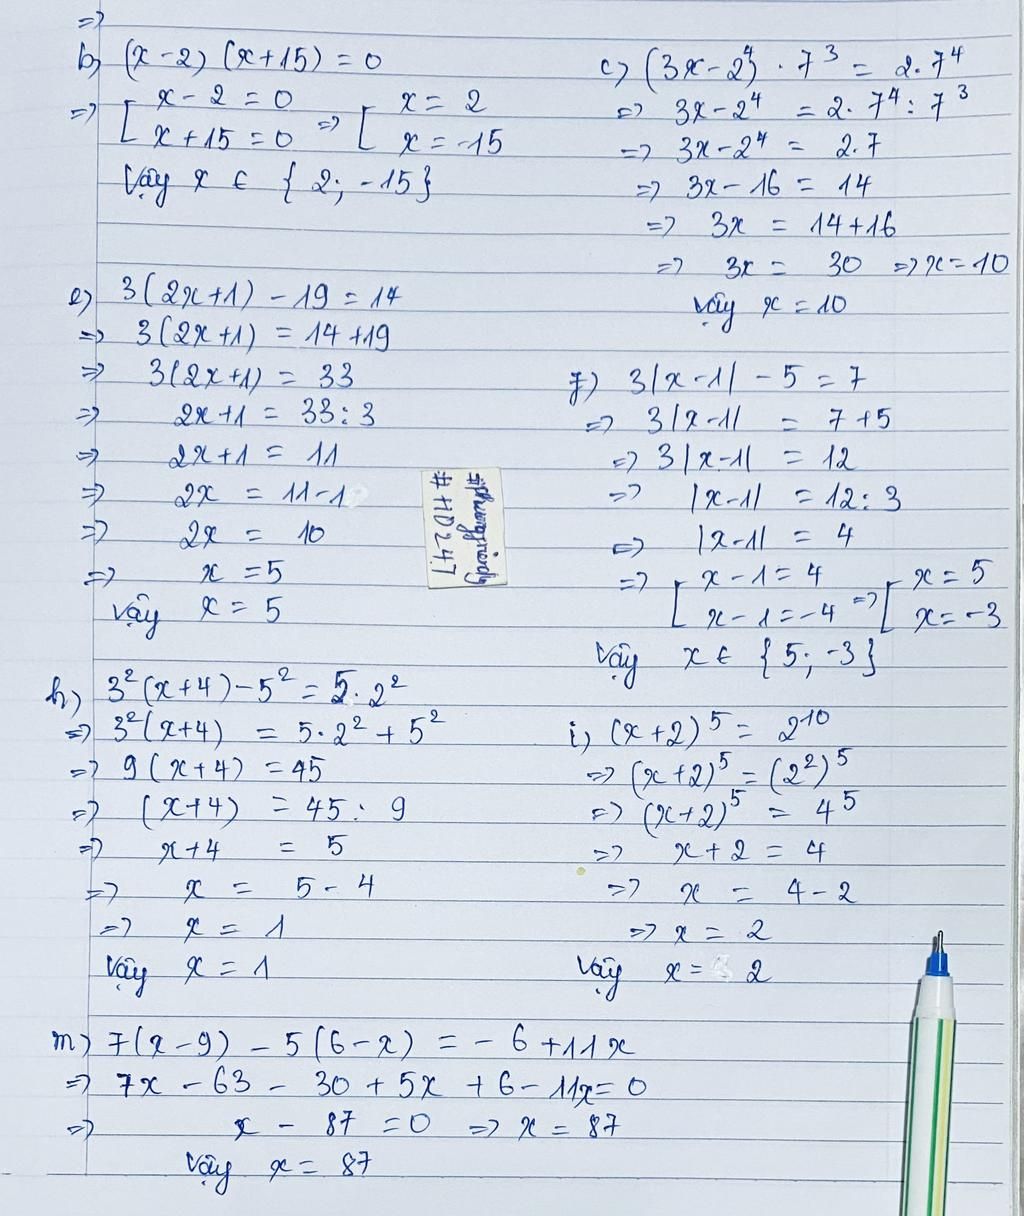 =>
b) (x-2) (x+15) = 0
=> [ x - 2 = 0 => [ x = 2
x + 15 = 0 x = -15
Vậy x ∈ { 2; -15 }
c) (3x - 2⁴) . 7³ = 2. 7⁴
=> 3x - 2⁴ = 2. 7⁴ : 7³
=> 3x - 2⁴ = 2.7
=> 3x - 16 = 14
=> 3x = 14 + 16
=> 3x = 30 => x = 10
Vậy x = 10
e) 3(2x+1) - 19 = 14
=> 3(2x+1) = 14 + 19
=> 3(2x+1) = 33
=> 2x+1 = 33 : 3
=> 2x+1 = 11
=> 2x = 11-1
=> 2x = 10
=> x = 5
Vậy x = 5
#HD247
f) 3|x-1| - 5 = 7
=> 3|x-1| = 7 + 5
=> 3|x-1| = 12
=> |x-1| = 12 : 3
=> |x-1| = 4
=> [ x - 1 = 4 => [ x = 5
x - 1 = -4 x = -3
Vậy x ∈ { 5; -3 }
h) 3²(x+4) - 5² = 5. 2²
=> 3²(x+4) = 5. 2² + 5²
=> 9(x+4) = 45
=> (x+4) = 45 : 9
=> x+4 = 5
=> x = 5 - 4
=> x = 1
Vậy x = 1
i) (x+2)⁵ = 2¹⁰
=> (x+2)⁵ = (2²)⁵
=> (x+2)⁵ = 4⁵
=> x + 2 = 4
=> x = 4 - 2
=> x = 2
Vậy x = 2
m) 7(x-9) - 5(6-x) = - 6 + 11x
=> 7x - 63 - 30 + 5x + 6 - 11x = 0
=> x - 87 = 0 => x = 87
Vậy x = 87